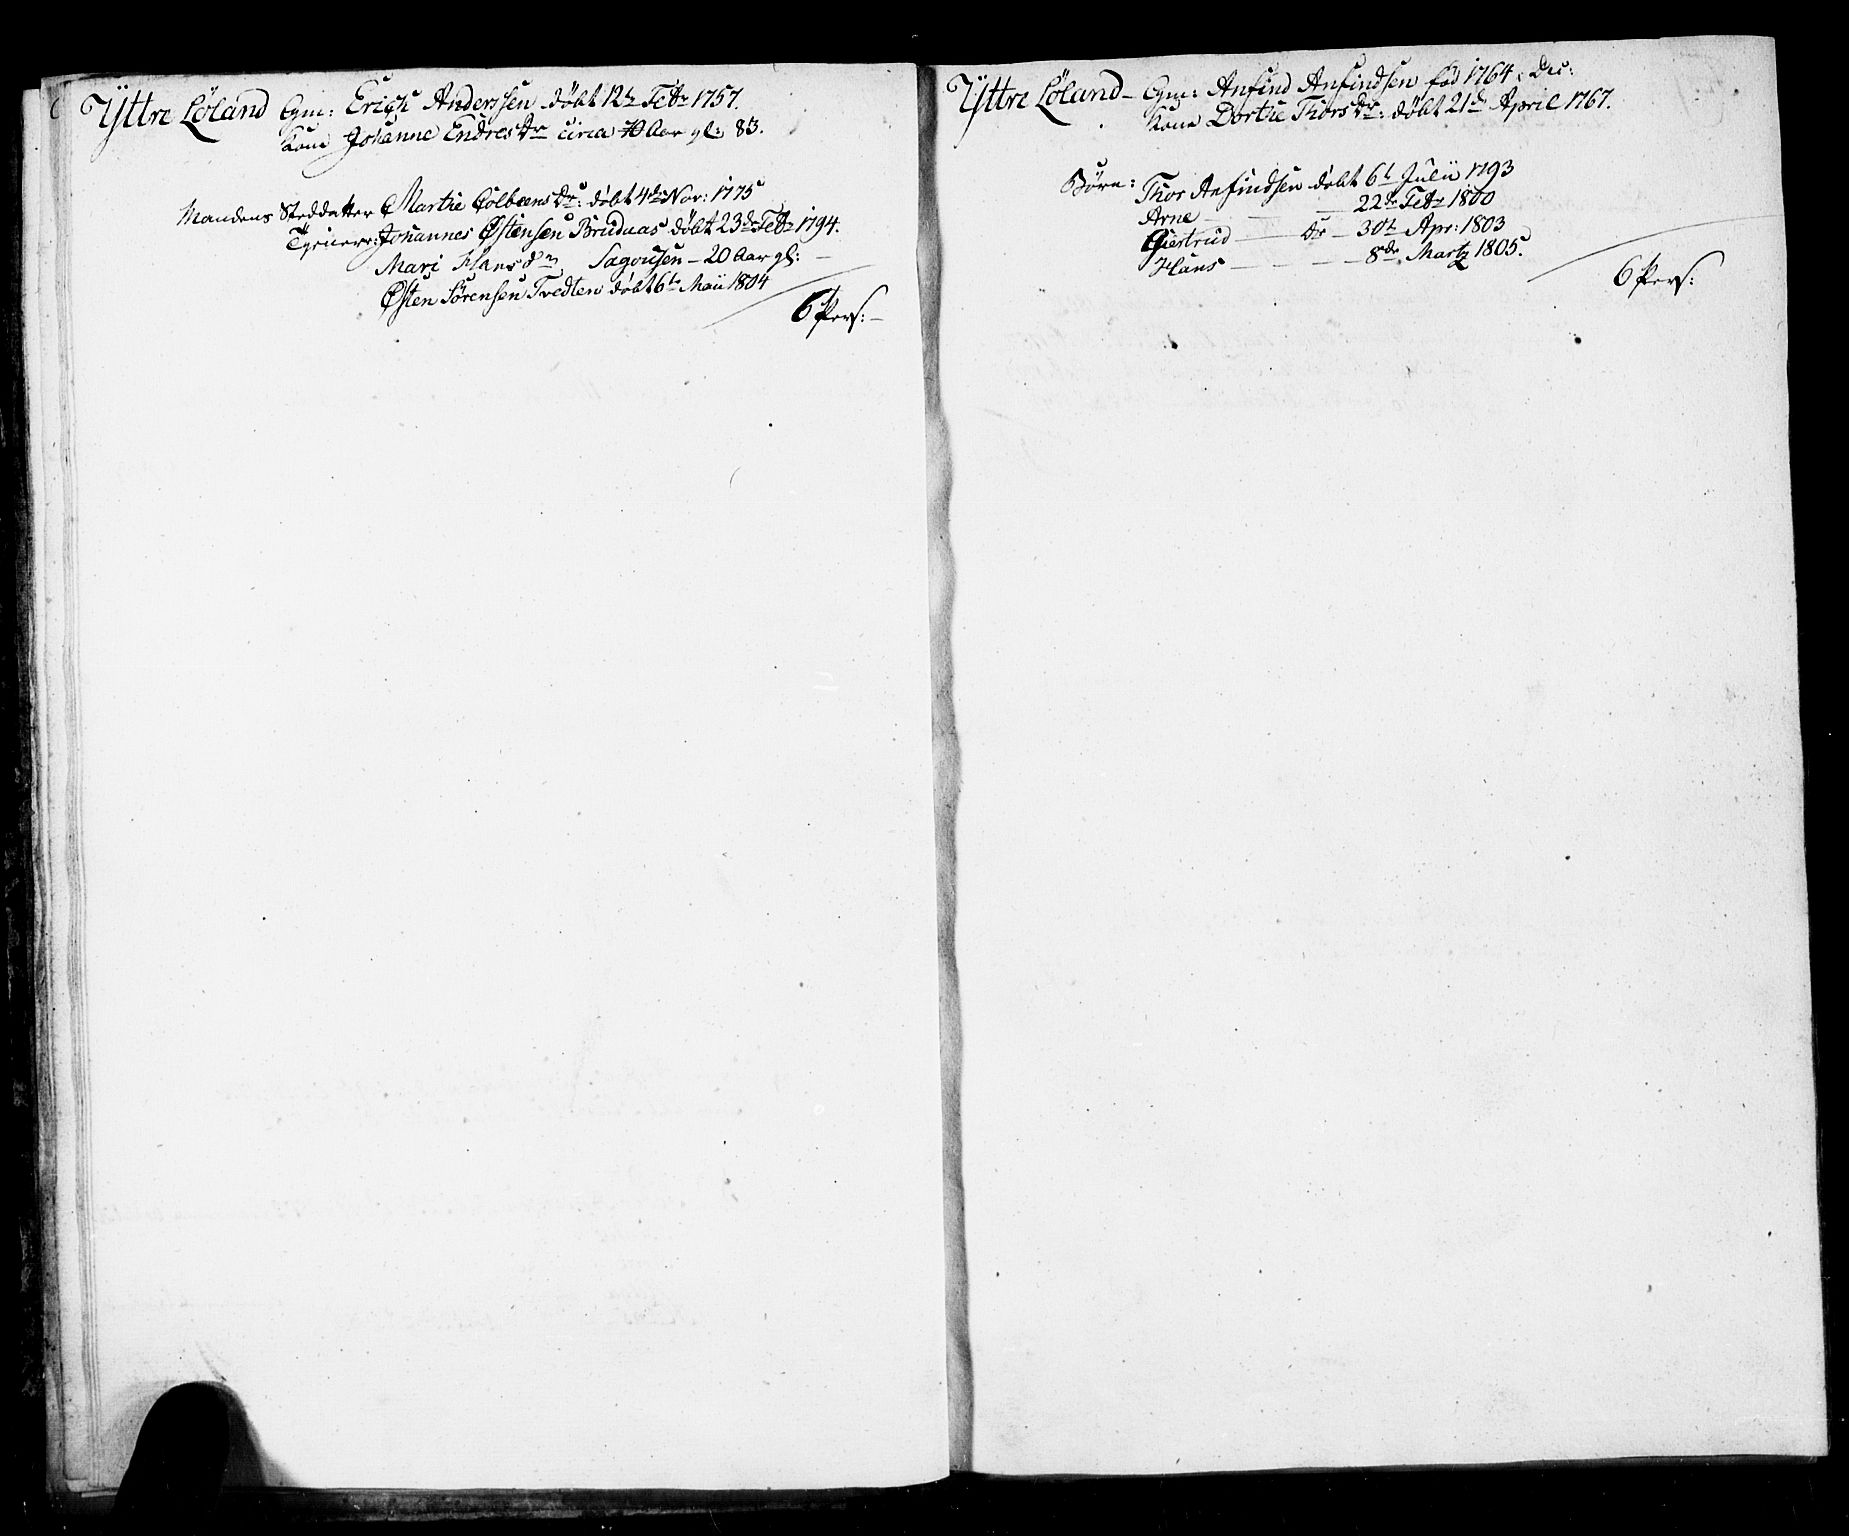 Yttre Löland Egm: Erich Anderssen döbt 12te Febr 1757.
Kone Johanne Endresdr circa 70 Aar gl: 83.
Mandens Steddatter Marthe Colbeensdr: döbt 4de Nov: 1775
Tyenere: Johannes Østensen Brudnaas döbt 23de Febr 1794.
Mari Hansdr Sagousen – 20 Aar gl: –
Østen Sörensen Tvedten döbt 6te Maii 1804
6 Pers: –
Yttre Löland – Egm: Anfind Anfindsen fød 1764, Dec:
Kone Dorthe Thorsdr: döbt 21de April 1767.
Börn: Thor Anfindsen döbt 6t Julii 1793
Arne – – – 22de Febr 1800
Giertrud – dr – 30te Apr: 1803
Hans – – – – 8de Martz 1805.
6 Pers: